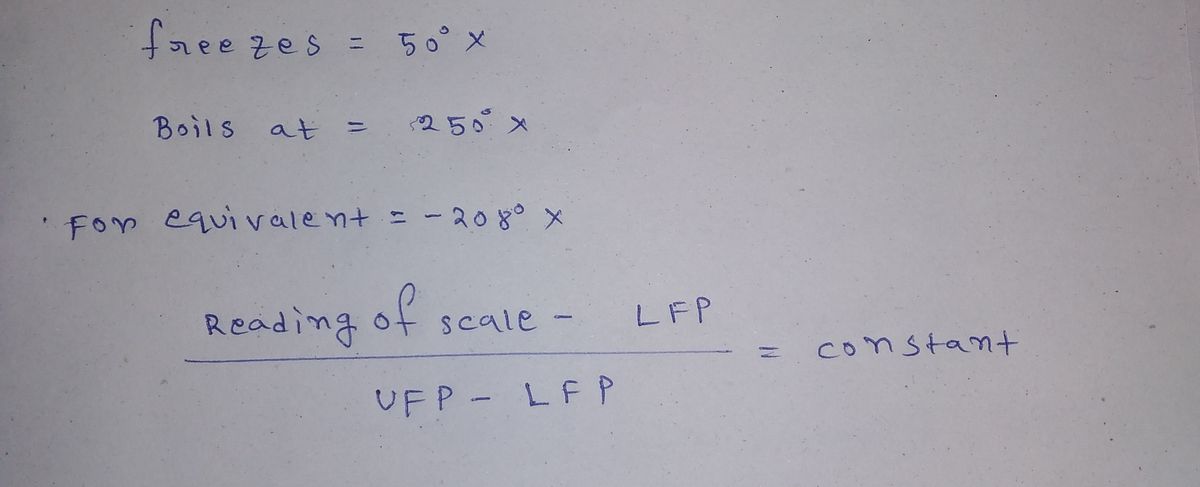 freezes = 50° X
Boils at = 250° X
For equivalent = - 208° X
Reading of scale - LFP
= constant
UFP - LFP